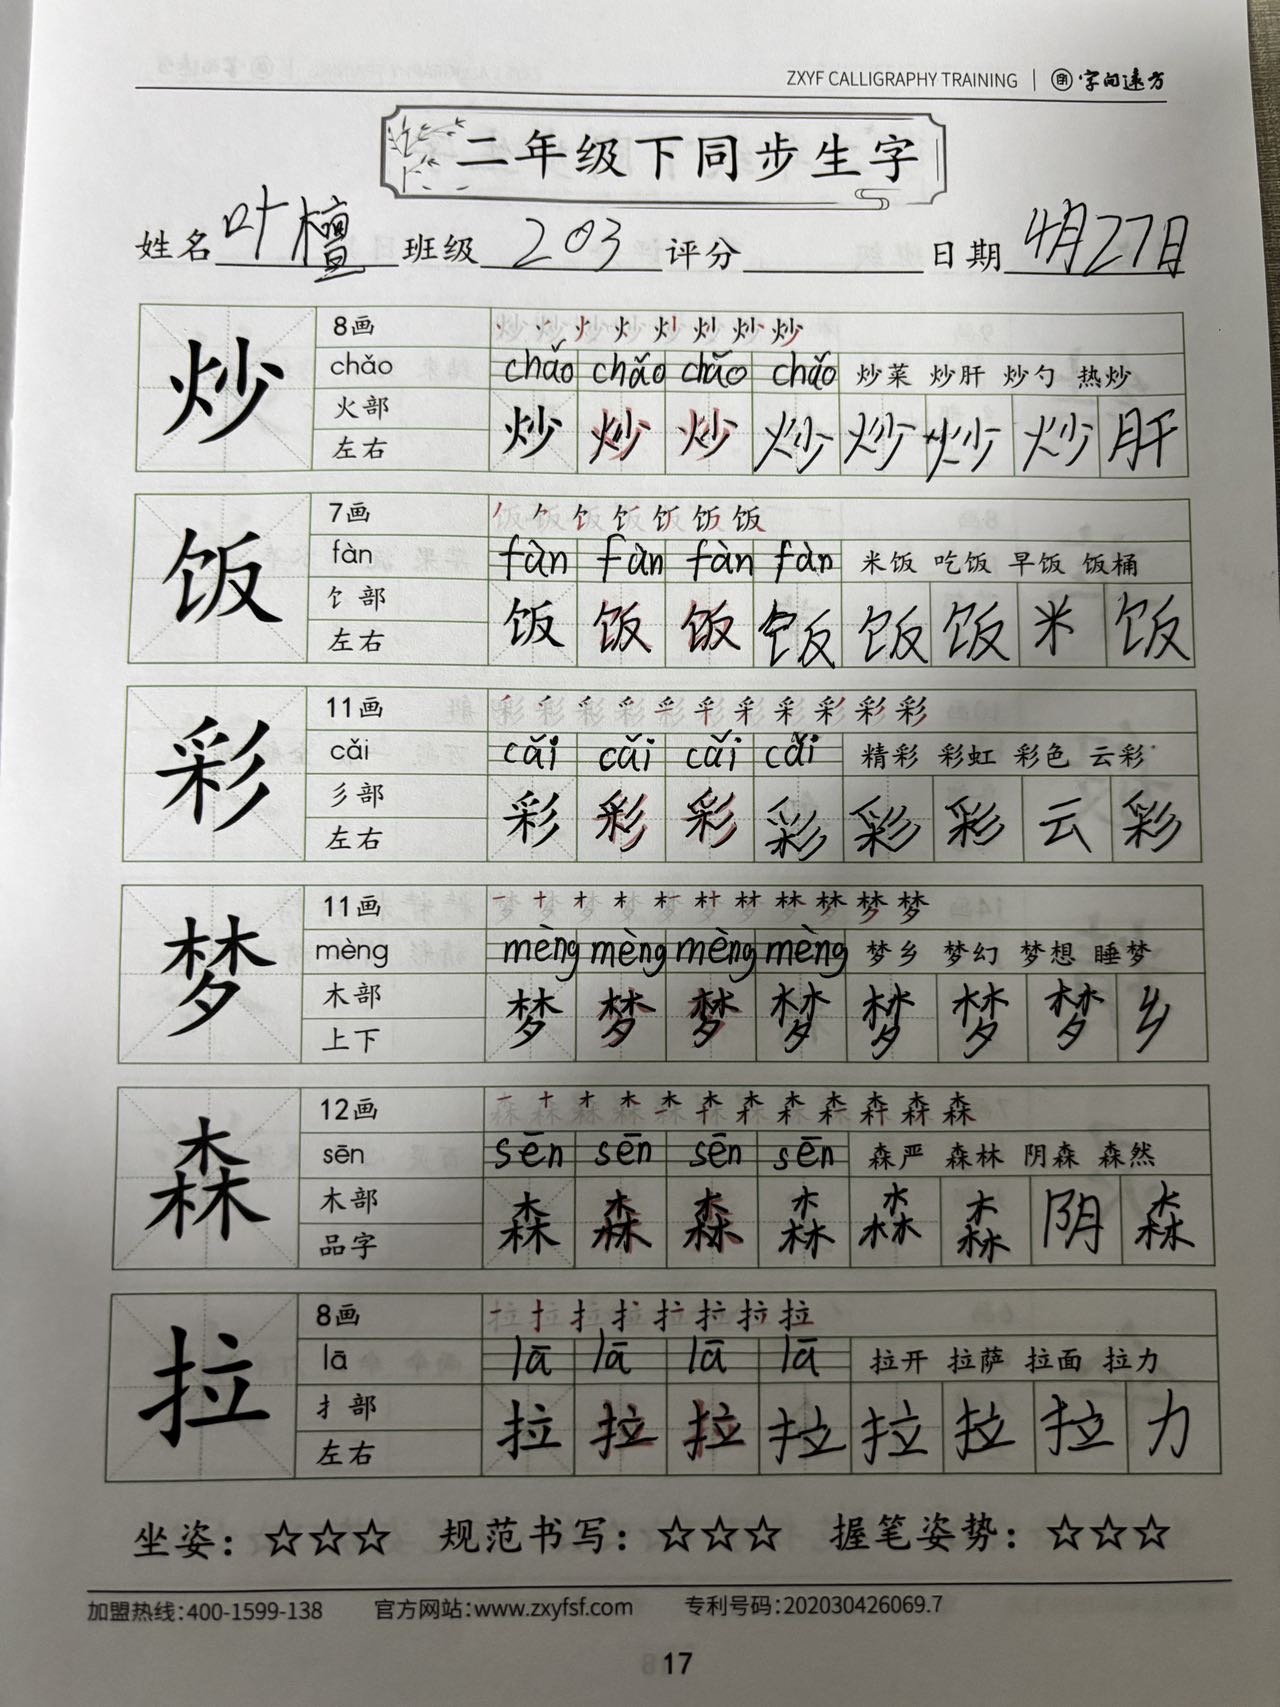 ZXYF CALLIGRAPHY TRAINING | 字间远方
二年级下同步生字
姓名 叶檀 班级 203 评分 日期 4月27日
炒
8画
chǎo chǎo chǎo chǎo chǎo 炒菜 炒肝 炒勺 热炒
火部
左右
炒 炒 炒 炒 炒 炒 炒 肝
饭
7画
fàn fàn fàn fàn fàn 米饭 吃饭 早饭 饭桶
饣部
左右
饭 饭 饭 饭 饭 饭 米 饭
彩
11画
cǎi cǎi cǎi cǎi cǎi 精彩 彩虹 彩色 云彩
彡部
左右
彩 彩 彩 彩 彩 彩 云 彩
梦
11画
mèng mèng mèng mèng mèng 梦乡 梦幻 梦想 睡梦
木部
上下
梦 梦 梦 梦 梦 梦 梦 乡
森
12画
sēn sēn sēn sēn sēn 森严 森林 阴森 森然
木部
品字
森 森 森 森 森 森 阴 森
拉
8画
lā lā lā lā lā 拉开 拉萨 拉面 拉力
扌部
左右
拉 拉 拉 拉 拉 拉 拉 力
坐姿：☆☆☆ 规范书写：☆☆☆ 握笔姿势：☆☆☆
加盟热线：400-1599-138 官方网站：www.zxyfsf.com 专利号码：202030426069.7
17